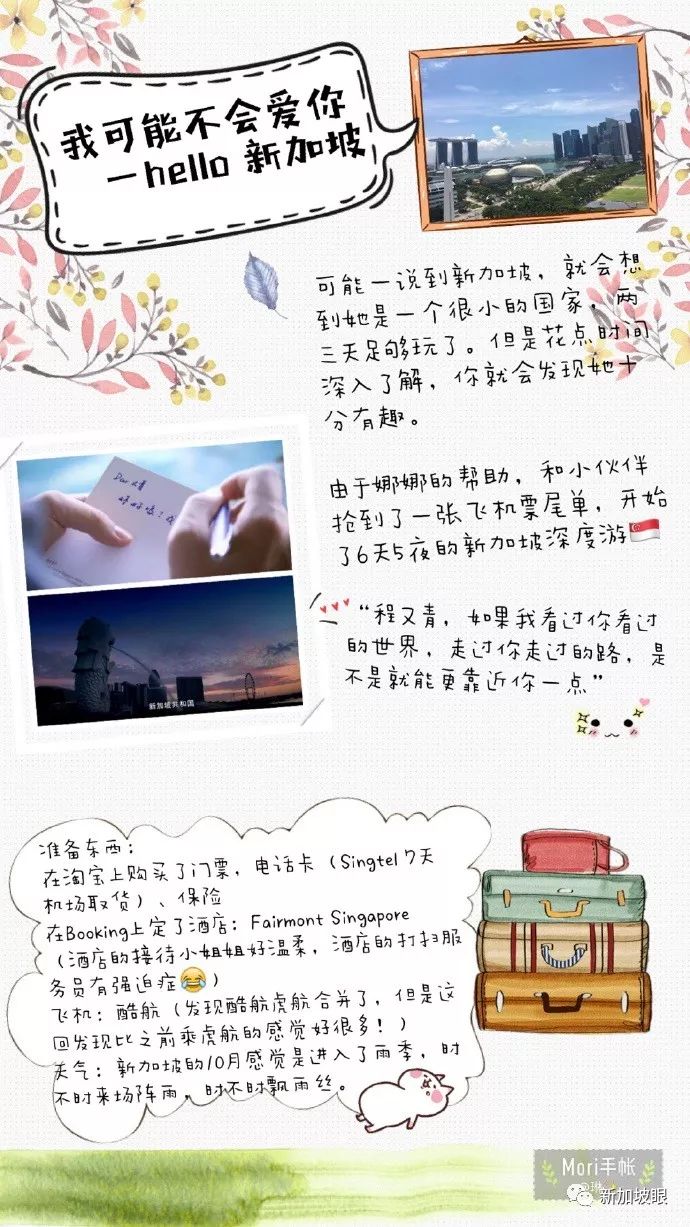 我可能不会爱你
—hello 新加坡
可能一说到新加坡，就会想
到她是一个很小的国家，两
三天足够玩了。但是花点时间
深入了解，你就会发现她十
分有趣。
由于娜娜的帮助，和小伙伴
抢到了一张飞机票尾单，开始
了6天5夜的新加坡深度游🇸🇬
“程又青，如果我看过你看过
的世界，走过你走过的路，是
不是就能更靠近你一点”
新加坡共和国
准备东西：
在淘宝上购买了门票，电话卡（Singtel 7天
机场取货）、保险
在Booking上定了酒店：Fairmont Singapore
（酒店的接待小姐姐好温柔，酒店的打扫服
务员有强迫症😂）
飞机：酷航（发现酷航虎航合并了，但是这
回发现比之前乘虎航的感觉好很多！）
天气：新加坡的10月感觉是进入了雨季，时
不时来场阵雨，时不时飘雨丝。
Mori手帐
新加坡眼